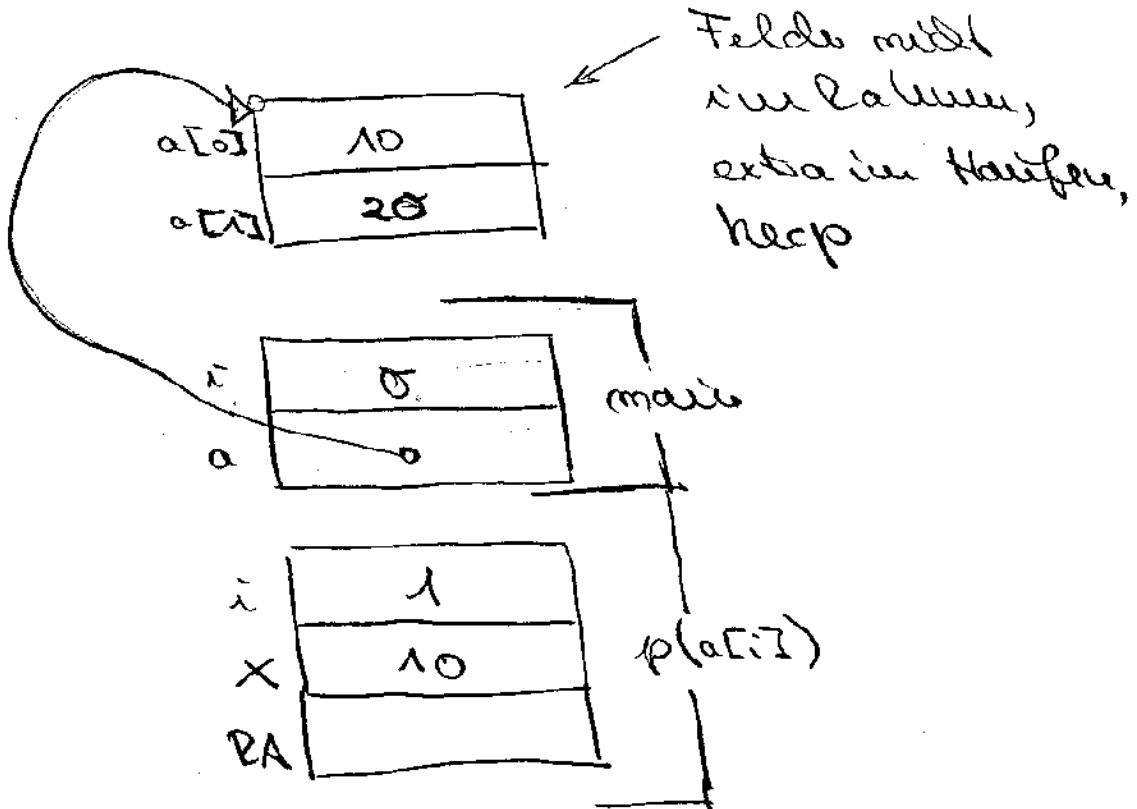 Felder nicht
im Rahmen,
extra im Haufen,
heap
a[0] 10
a[1] 20
i 0
main
a
i 1
p(a[i])
x 10
RA